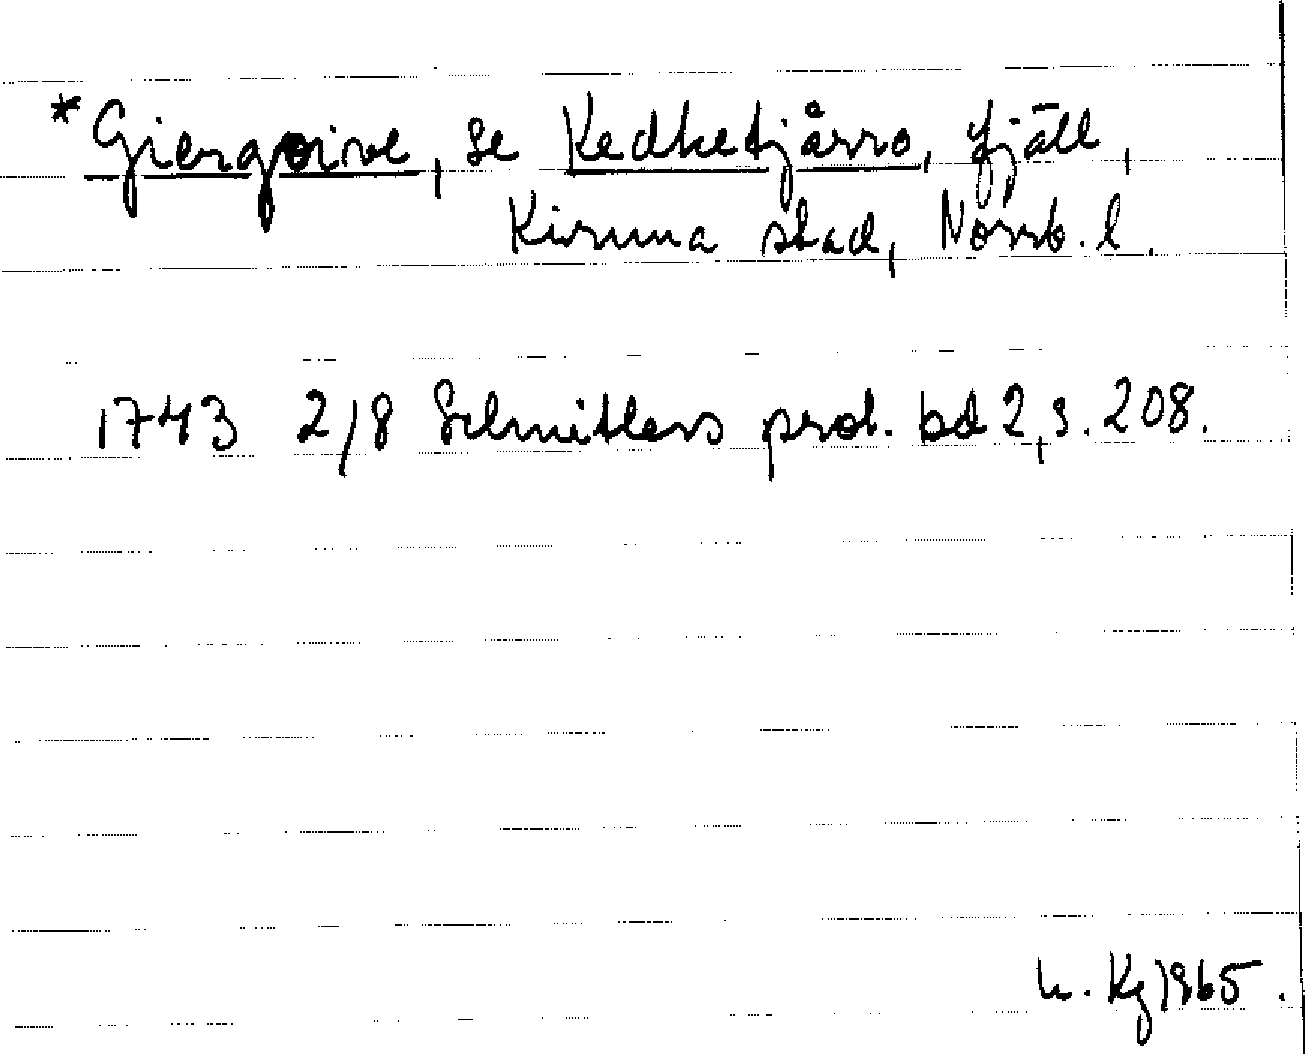 *Giergoive, se Kedketjårro, fjäll,
Kiruna stad, Norrb. l.
1743 2/8 Schnitlers prot. bd 2, s. 208.
h. Kg 1965.